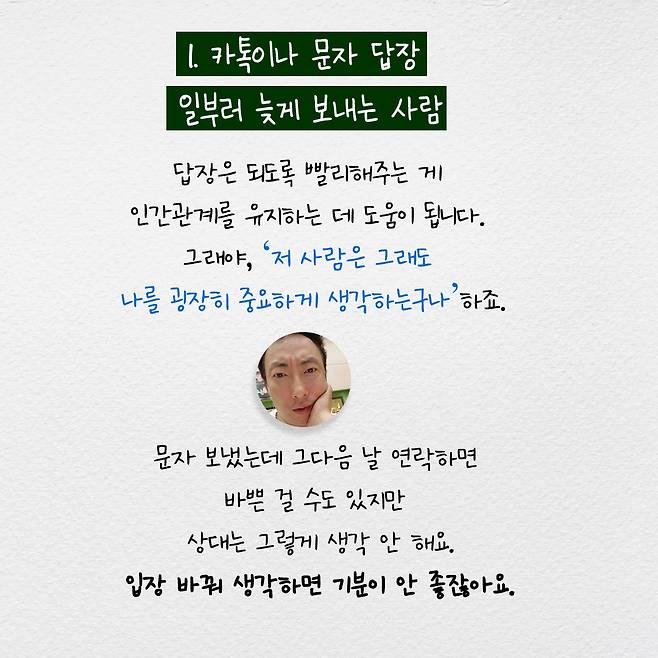 1. 카톡이나 문자 답장
일부러 늦게 보내는 사람
답장은 되도록 빨리해주는 게
인간관계를 유지하는 데 도움이 됩니다.
그래야, ‘저 사람은 그래도
나를 굉장히 중요하게 생각하는구나’하죠.
문자 보냈는데 그다음 날 연락하면
바쁜 걸 수도 있지만
상대는 그렇게 생각 안 해요.
입장 바꿔 생각하면 기분이 안 좋잖아요.